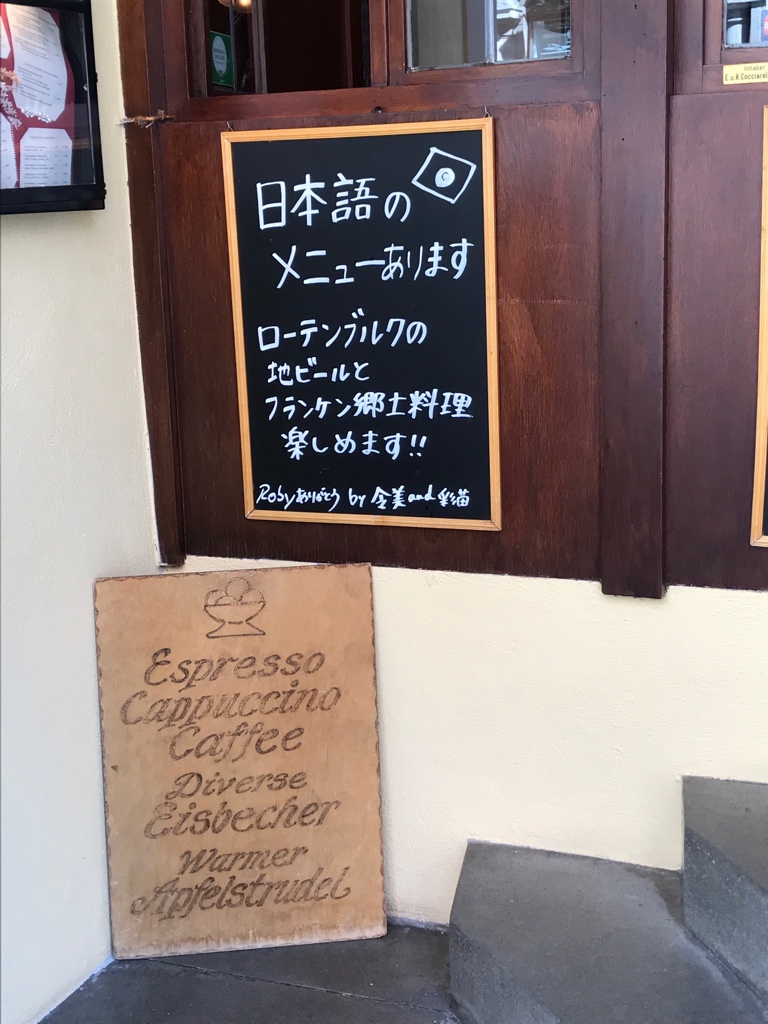 日本語の
メニューあります
ローテンブルクの
地ビールと
フランケン郷土料理
楽しめます!!
Robyありがとう by 金美and彩猫
Espresso
Cappuccino
Caffee
Diverse
Eisbecher
Warmer
Apfelstrudel
Inhaber